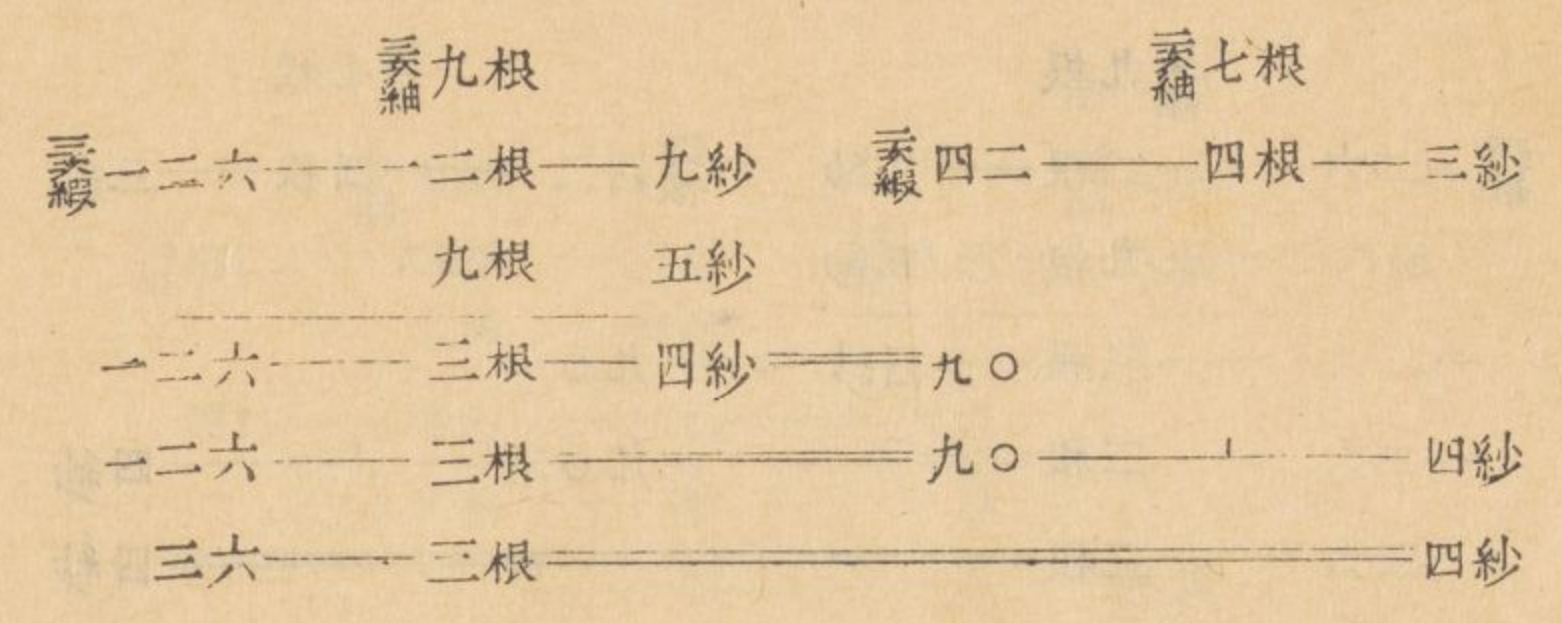 三次紬九根 二次紬七根
三次緞一二六——一二根——九紗 二次緞四二——四根——三紗
九根 五紗
一二六——三根——四紗══九〇
一二六——三根══九〇⊥四紗
三六——三根══四紗